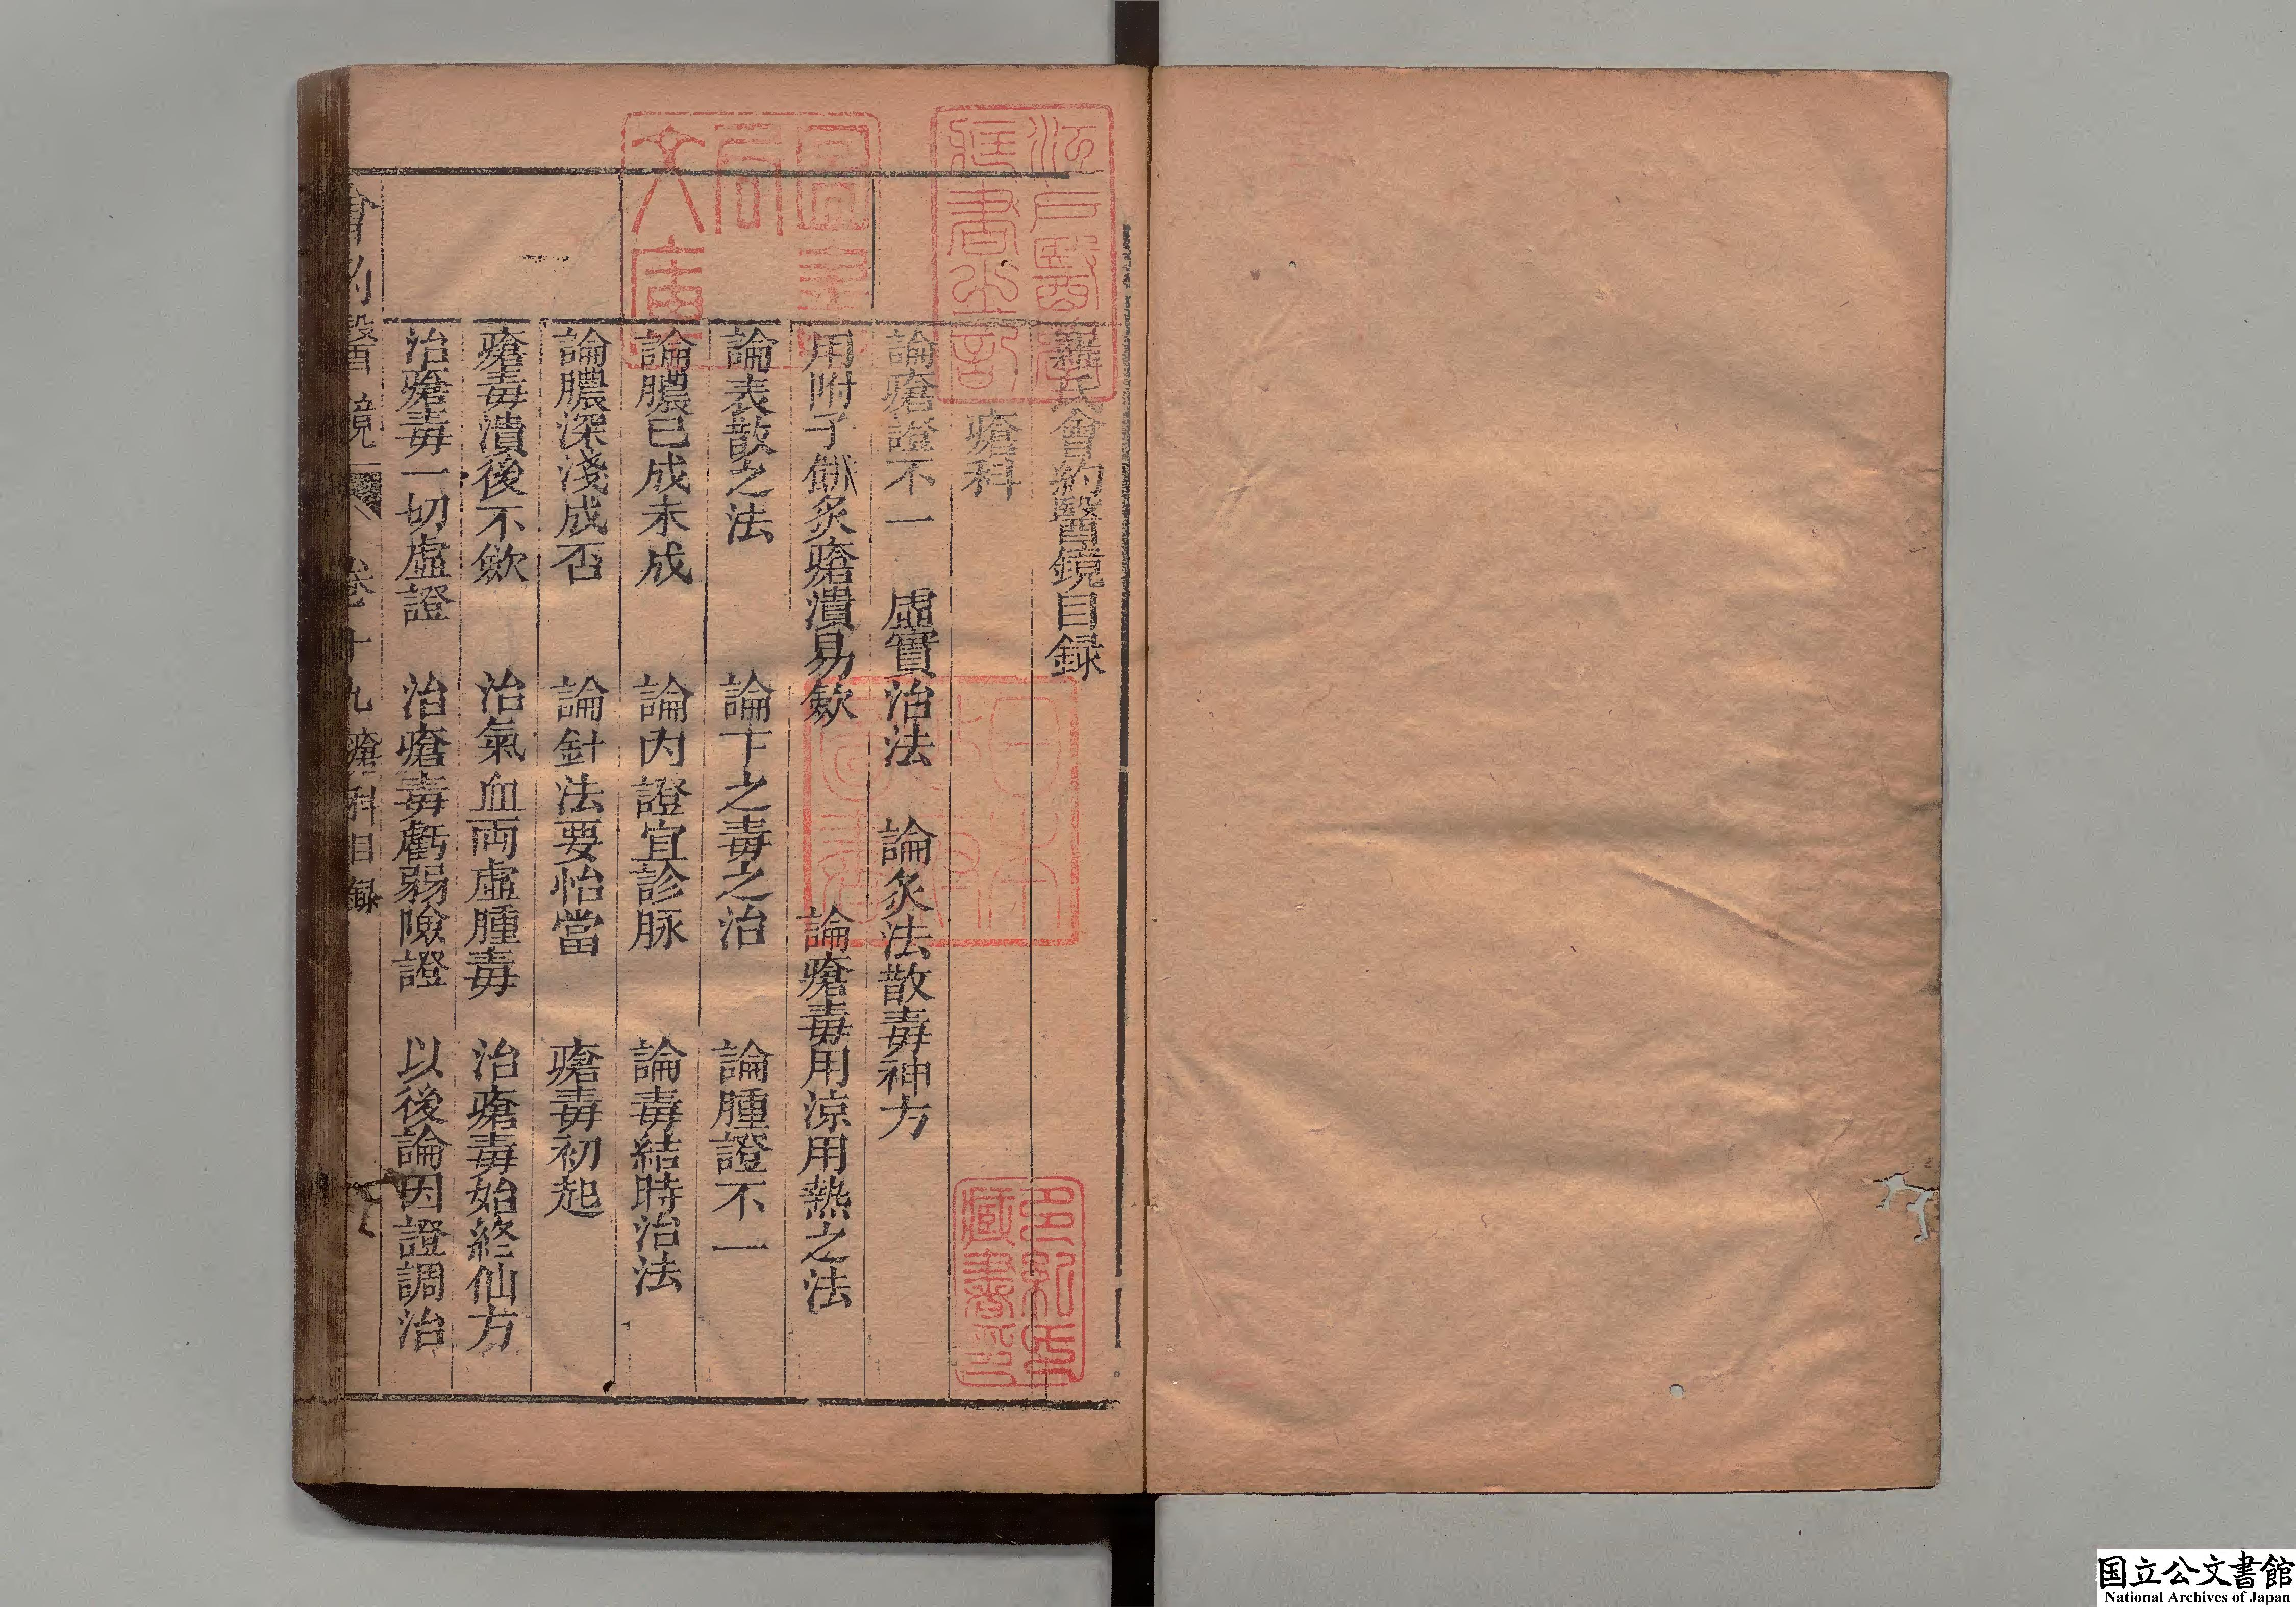 羅氏會約醫鏡目録
瘡科
論瘡證不一　虛實治法　論炙法散毒神方
用附子餅炙瘡潰易歛　論瘡毒用涼用熱之法
論表散之法　論下之毒之治　論腫證不一
論膿已成未成　論内證宜診脉　論毒結時治法
論膿深淺成否　論針法要恰當　瘡毒初起
瘡毒潰後不歛　治氣血両虛腫毒　治瘡毒始終仙方
治瘡毒一切虛證　治瘡毒虧弱險證　以後論因證調治
會約醫鏡　卷十九　瘡科目録
江戸醫學藏書之記
日本政府圖書
多紀氏藏書印
国立公文書館
National Archives of Japan